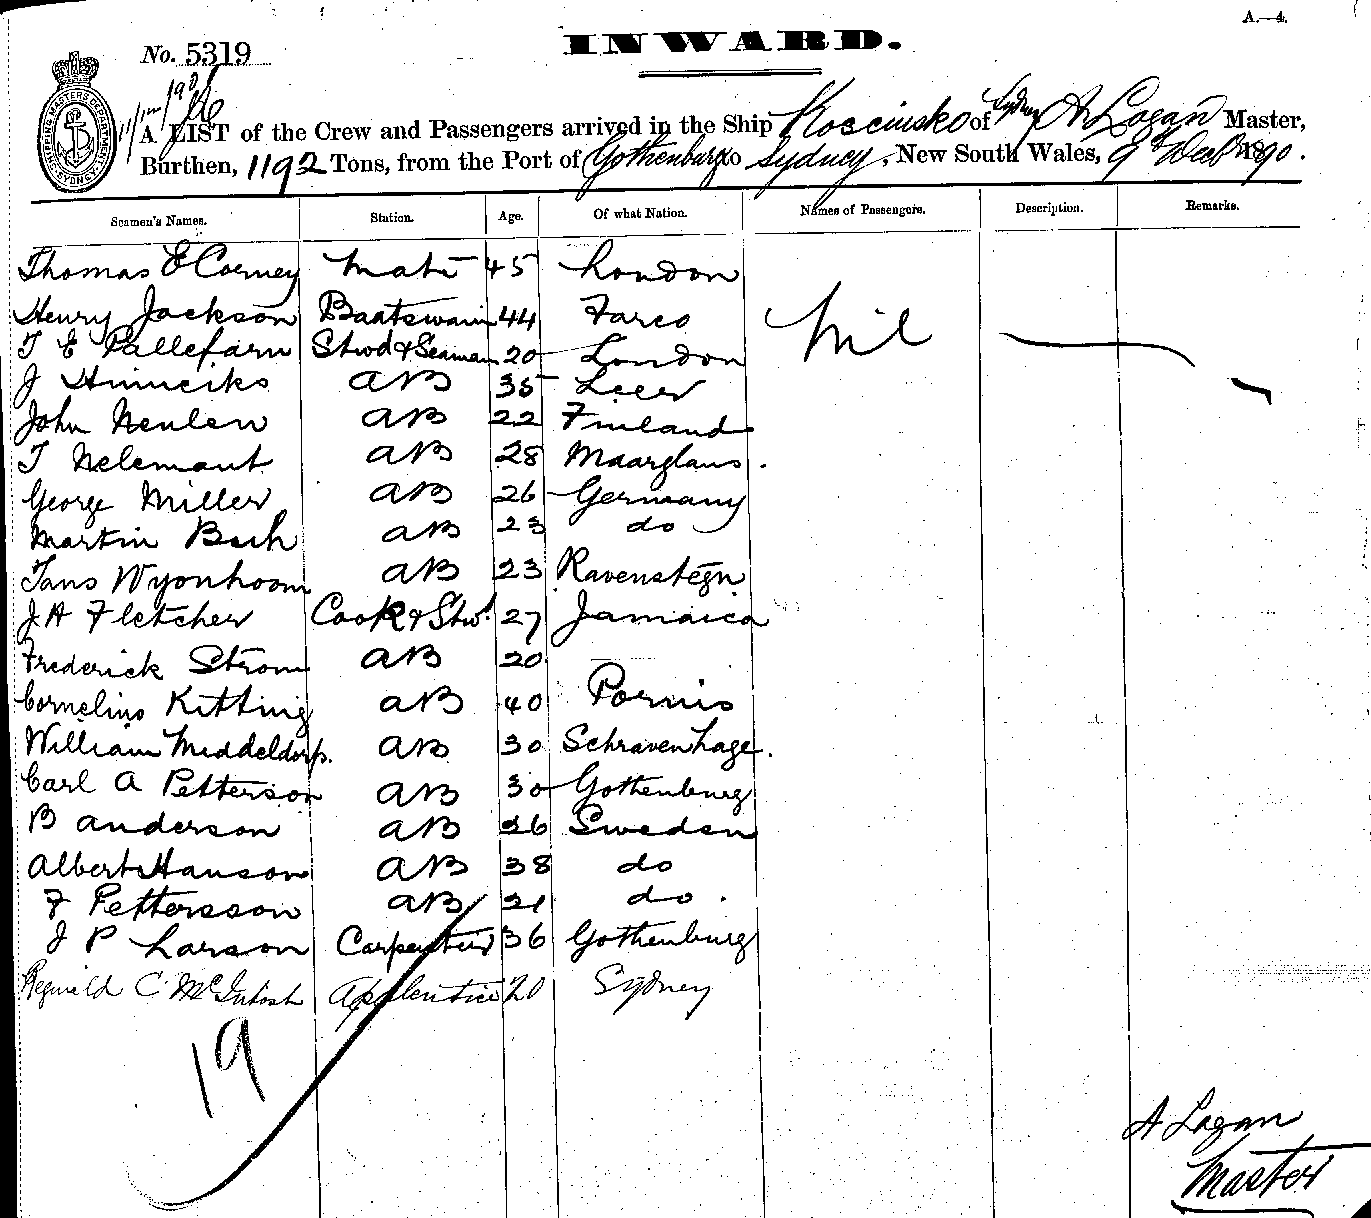 A.—4.
INWARD.
No. 5319
A LIST of the Crew and Passengers arrived in the Ship Kosciusko of Sydney A Logan Master,
Burthen, 1192 Tons, from the Port of Gothenburg to Sydney, New South Wales, 9th Decbr 1890.
Seamen's Names. Station. Age. Of what Nation. Names of Passengers. Description. Remarks.
Thomas E Corney Mate 45 London
Henry Jackson Boatswain 44 Faroo Nil
T E Pallefarn Stwd & Seaman 20 London
J Hinneiks AB 35 Leer
John Nenlen AB 22 Finland
T Nelemant AB 28 Maarglans.
George Miller AB 26 Germany
Martin Bach AB 23 do
Tans Wyonhoom AB 23 Ravenstegn
J A Fletcher Cook & Stwd 27 Jamaica
Frederick Strom AB 20
Cornelius Kitting AB 40 Pornis
William Middeldorp. AB 30 Schravenhage.
Carl A Petterson AB 30 Gothenburg
B Anderson AB 26 Sweden
Albert Hanson AB 38 do
F Pettersson AB 21 do.
J P Larson Carpenter 36 Gothenburg
Reginald C McIntosh Apprentice 20 Sydney
19
A Logan
Master